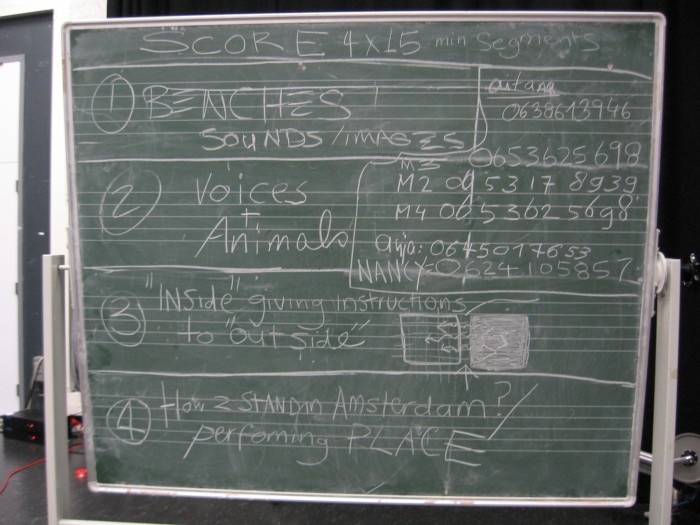 SCORE 4x15 min segments
① BENCHES
SOUNDS/IMAGES
aitana
0638613946
M3 0653625698
M2 0653178939
M4 0653625698
anja: 0645017653
NANCY: 0624105857
② Voices
+
Animals
③ "INSide" giving instructions
to "outside"
④ How 2 STAND in Amsterdam?/
perfoming PLACE